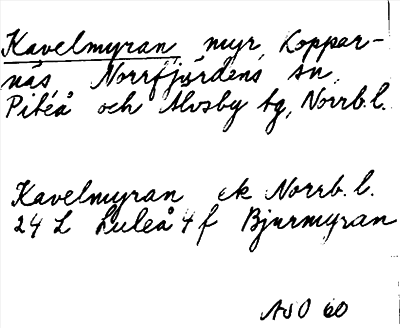 Kavelmyran, myr, Koppar-
näs, Norrfjärdens sn,
Piteå och Älvsby tg, Norrb.l.
Kavelmyran ek Norrb.l.
24 L Luleå 4 f Bjurmyran
60